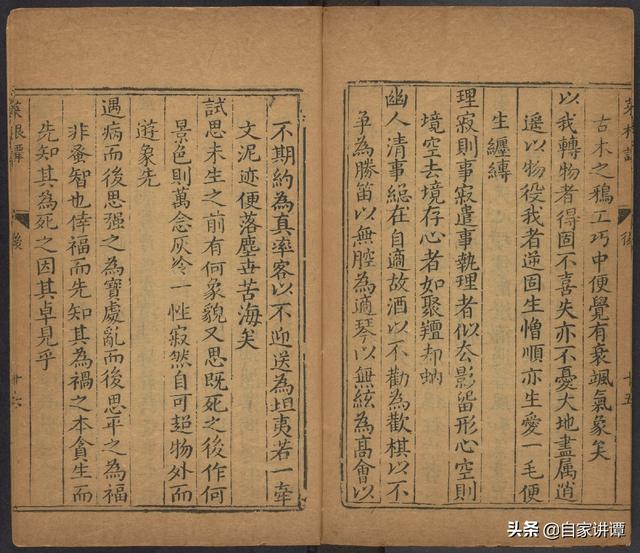 菜根譚
後
十五
古木之鴉工巧中便覺有衰颯氣象矣
以我轉物者得固不喜失亦不憂大地盡属逍
遥以物役我者逆固生憎順亦生愛一毛便
生纏縛
理寂則事寂遣事執理者似去影留形心空則
境空去境存心者如聚羶却蚋
幽人清事緫在自適故酒以不勸為歡棋以不
爭為勝笛以無腔為適琴以無絃為高會以
不期約為真率客以不迎送為坦夷若一牽
文泥迹便落塵世苦海矣
試思未生之前有何象貌又思既死之後作何
景色則萬念灰冷一性寂然自可超物外而
遊象先
遇病而後思强之為寶處亂而後思平之為福
非蚤智也倖福而先知其為禍之本貪生而
先知其為死之因其卓見乎
菜根譚
後
十六
头条 @自家讲谭